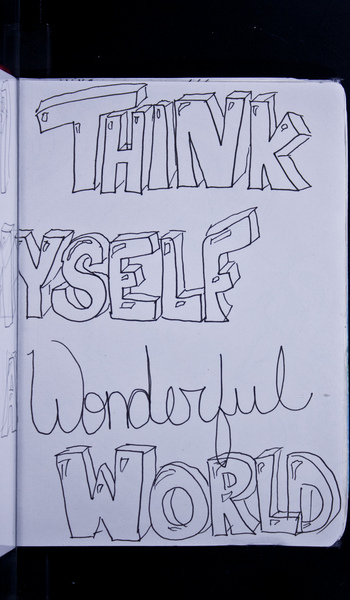 THINK
YSELF
Wonderful
WORLD